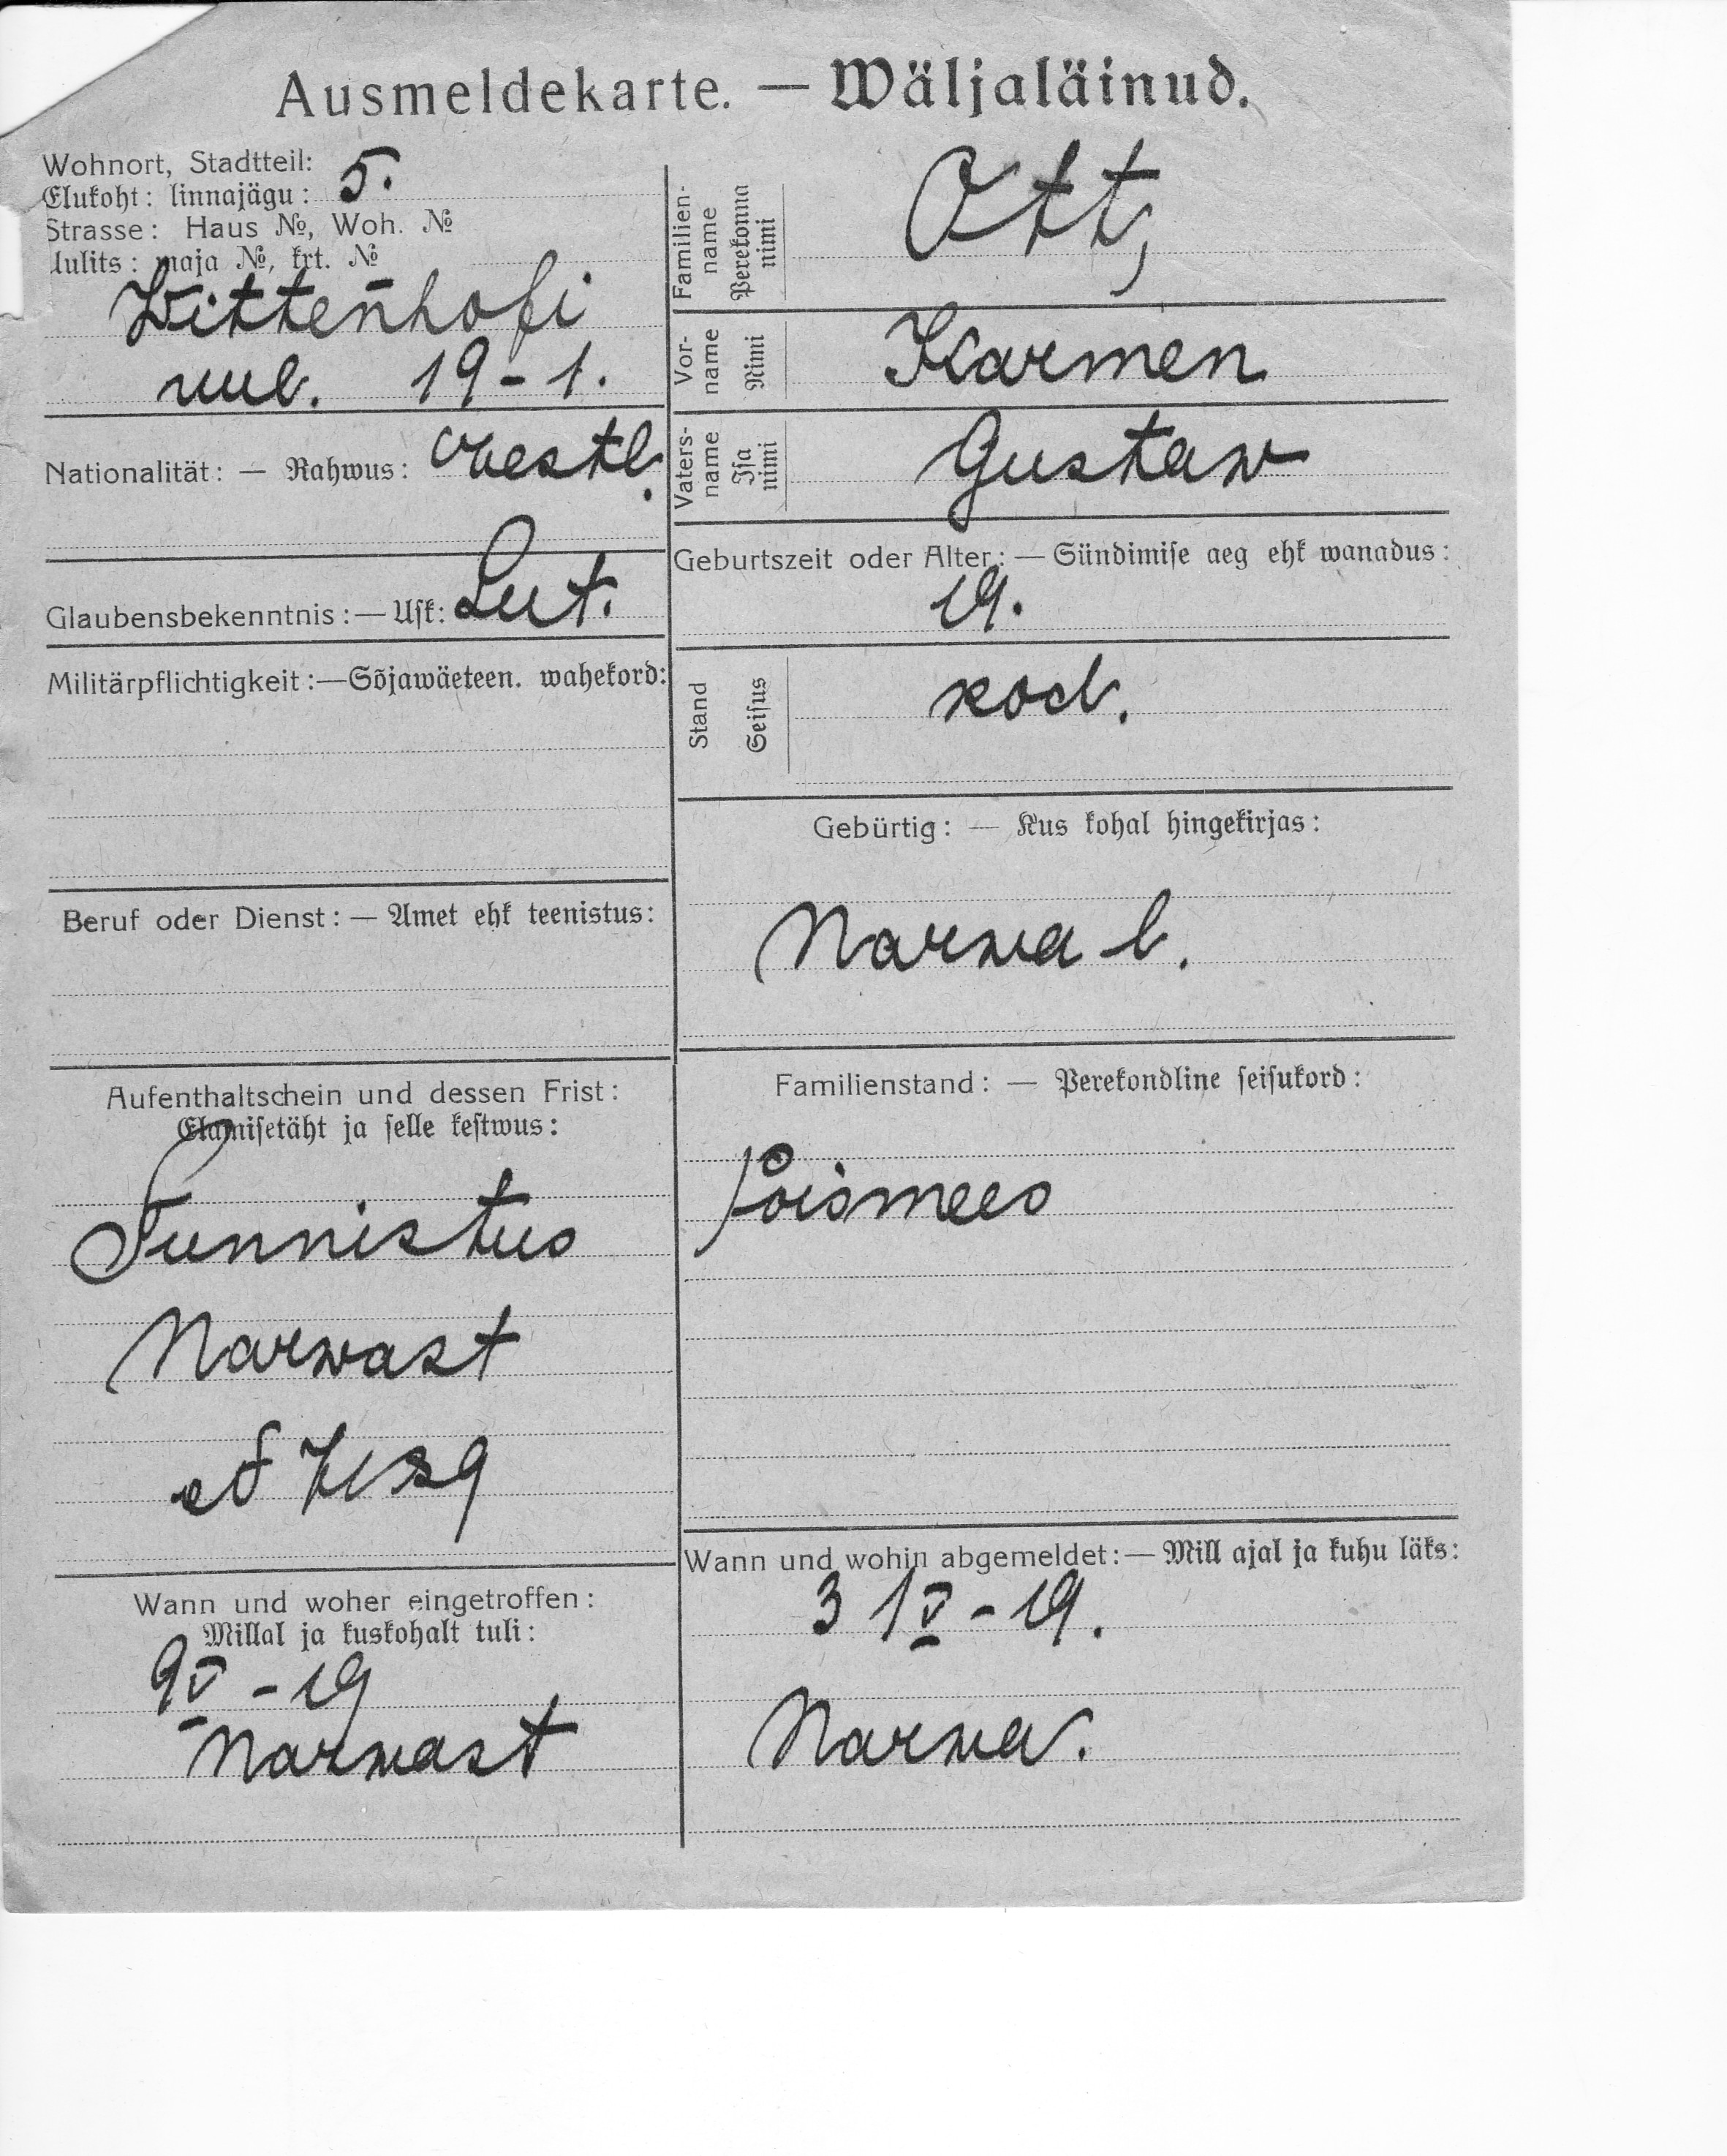 Ausmeldekarte. — Wäljaläinud.
Wohnort, Stadtteil:
Elukoht: linnajägu: 5.
Strasse: Haus №, Woh. №
Uulits: maja №, krt. №
Wittenhofi
uul. 19-1.
Nationalität: — Rahwus: eestl.
Glaubensbekenntnis: — Usk: Lut.
Militärpflichtigkeit: — Sõjawäeteen. wahekord:
Beruf oder Dienst: — Amet ehk teenistus:
Aufenthaltschein und dessen Frist:
Elamisetäht ja selle kestwus:
Tunnistus
Narwast
Wann und woher eingetroffen:
Millal ja kuskohalt tuli:
9 V - 19
Narwast
Familien-name Perekonna nimi Ott,
Vor-name Nimi Karmen
Vaters-name Isa nimi Gustaw
Geburtszeit oder Alter: — Sündimise aeg ehk wanadus:
19.
Stand Seisus kod.
Gebürtig: — Kus kohal hingekirjas:
Narwa l.
Familienstand: — Perekondline seisukord:
poismees
Wann und wohin abgemeldet: — Mill ajal ja kuhu läks:
3 IV - 19.
Narwa.